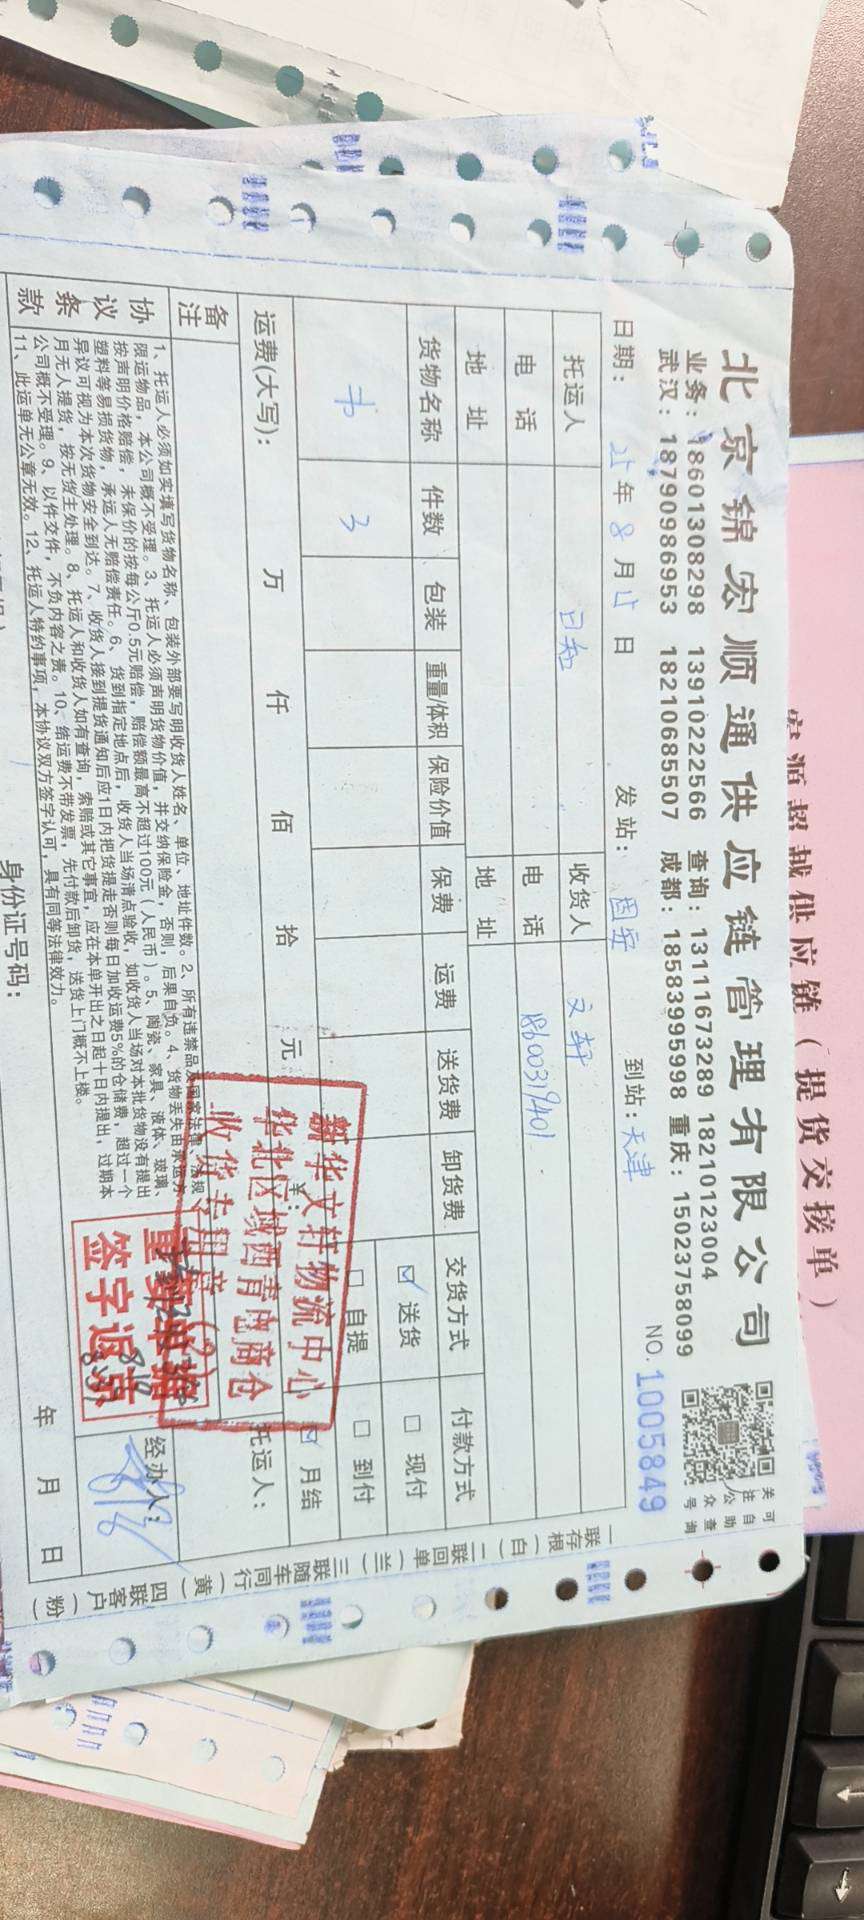 北京锦宏顺通供应链管理有限公司
业务：18601308298 13910222566 查询：13111673289 18210123004
武汉：18790986953 18210685507 成都：18583995998 重庆：15023758099
可自助查询
关注公众号
日期： 年 8 月 日 发站：固安 到站：天津 NO.1005849
托运人 日知 收货人 文轩
电话 电话 18600319401
地址 地址
货物名称 件数 包装 重量/体积 保险价值 保费 运费 送货费 卸货费 交货方式 付款方式
书 3 ☑ 送货 □ 现付
□ 自提 □ 到付
☑ 月结
运费(大写)： 万 仟 佰 拾 元 ¥：
备注
托运人：
协议条款
1、托运人必须如实填写货物名称、包装外部要写明收货人姓名、单位、地址件数。2、所有违禁品及国家法律、法规
限运物品，本公司概不受理。3、托运人必须声明货物价值，并交纳保险金，否则，后果自负。4、货物丢失由承运方
按声明价格赔偿，未保价的按每公斤0.5元赔偿，赔偿额最高不超过100元（人民币）。5、陶瓷、家具、液体、玻璃、
塑料等易损货物，承运人无赔偿责任。6、货到指定地点后，收货人当场清点验收，如收货人当场对本批货物没有提出
异议可视为本次货物安全到达。7、收货人接到提货通知后应1日内把货提走否则每日加收运费5%的仓储费，超过一个
月无人提货，按无货主处理。8、托运人和收货人如有查询，索赔或其它事宜，应在本单开出之日起十日内提出，过期本
公司概不受理。9、以件交件，不负内容之责。10、结运费不带发票，先付款后卸货，送货上门概不上楼。
11、此运单无公章无效。12、托运人特约事项，本协议双方签字认可，具有同等法律效力。
经办人：
年 月 日
身份证号码：
新华文轩物流中心
华北区域西青电商仓
收货专用章（2）
重要单据
签字返京
一联存根（白）二联回单（兰）三联随车同行（黄）四联客户（粉）
超越供应链（提货交接单）